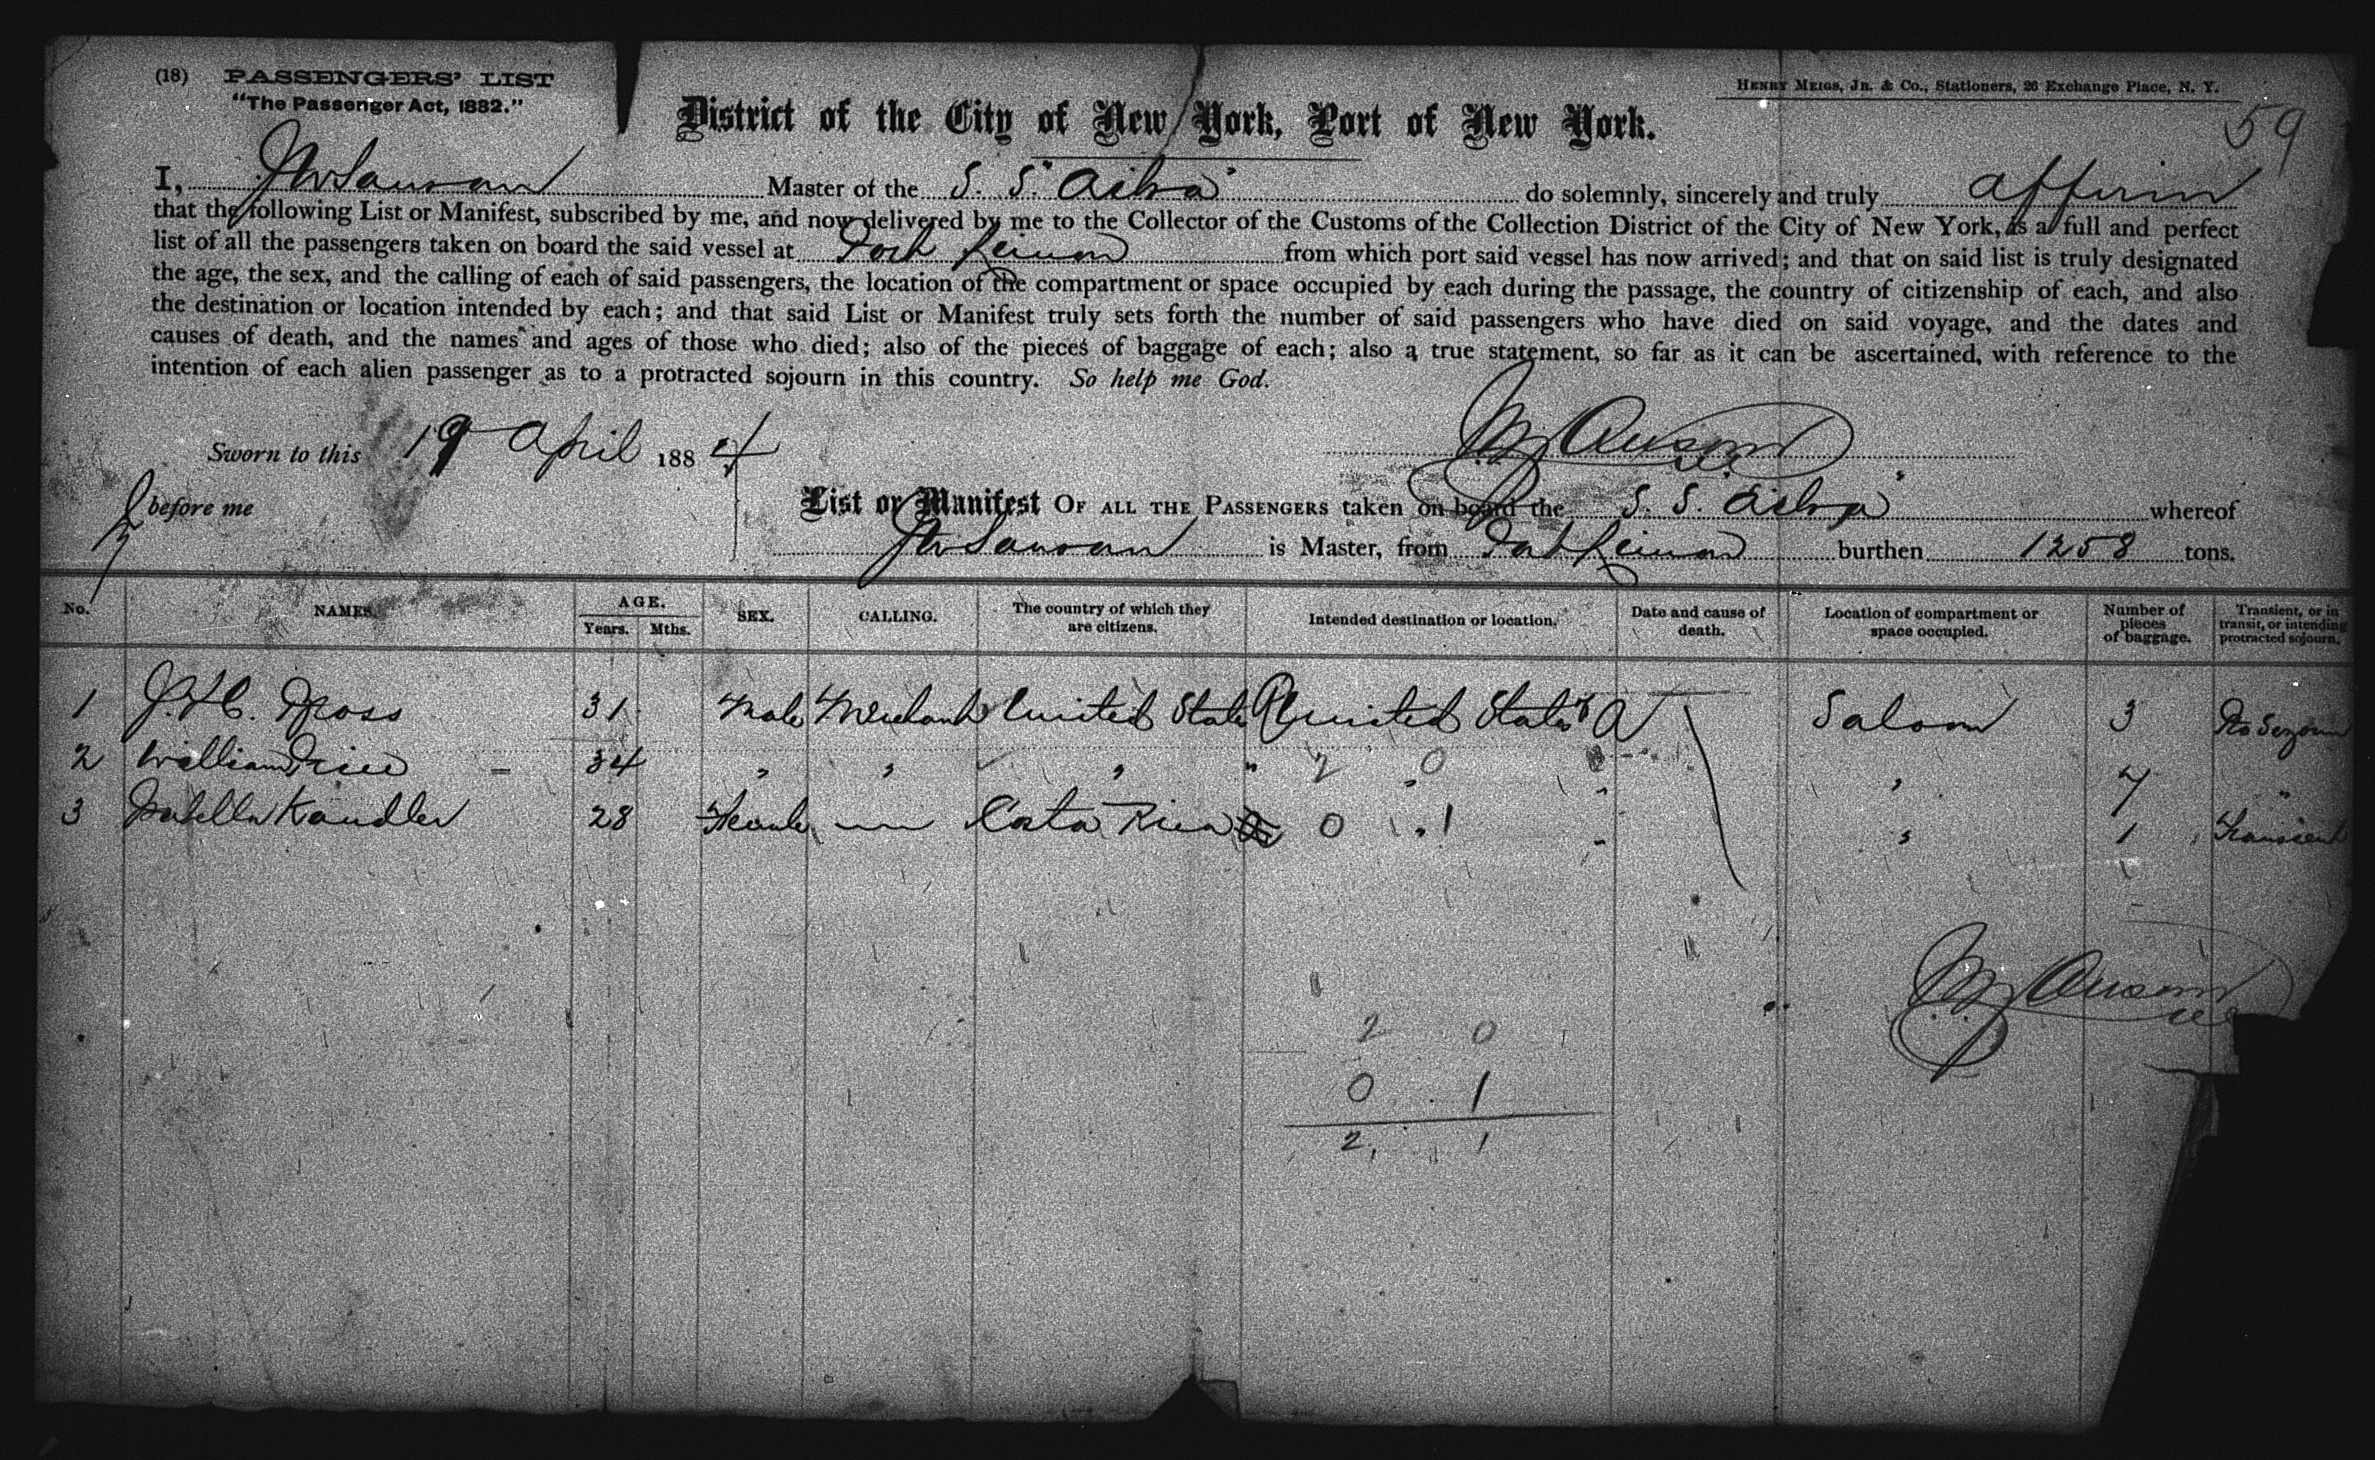 (18) PASSENGERS' LIST
"The Passenger Act, 1882."
HENRY MEIGS, JR. & Co., Stationers, 26 Exchange Place, N. Y.
59
District of the City of New York, Port of New York.
I, Master of the S. S. "Ailsa" do solemnly, sincerely and truly affirm
that the following List or Manifest, subscribed by me, and now delivered by me to the Collector of the Customs of the Collection District of the City of New York, is a full and perfect
list of all the passengers taken on board the said vessel at Port Limon from which port said vessel has now arrived; and that on said list is truly designated
the age, the sex, and the calling of each of said passengers, the location of the compartment or space occupied by each during the passage, the country of citizenship of each, and also
the destination or location intended by each; and that said List or Manifest truly sets forth the number of said passengers who have died on said voyage, and the dates and
causes of death, and the names and ages of those who died; also of the pieces of baggage of each; also a true statement, so far as it can be ascertained, with reference to the
intention of each alien passenger as to a protracted sojourn in this country. So help me God.
Sworn to this 19 April 1884
before me
List or Manifest OF ALL THE PASSENGERS taken on board the S. S. "Ailsa" whereof
is Master, from Port Limon burthen 1258 tons.
No. NAMES. AGE. Years. Mths. SEX. CALLING. The country of which they are citizens. Intended destination or location. Date and cause of death. Location of compartment or space occupied. Number of pieces of baggage. Transient, or in transit, or intending protracted sojourn.
1 J. H. C. Ross 31 Male Merchant United States United States of A Saloon 3 Pro Sejourn
2 William 34 " " " " 2 0 " " 7 "
3 Isabella Kandler 28 Female — Costa Rica 0 " 1 " " 1 Transient
2 0
0 1
2 1